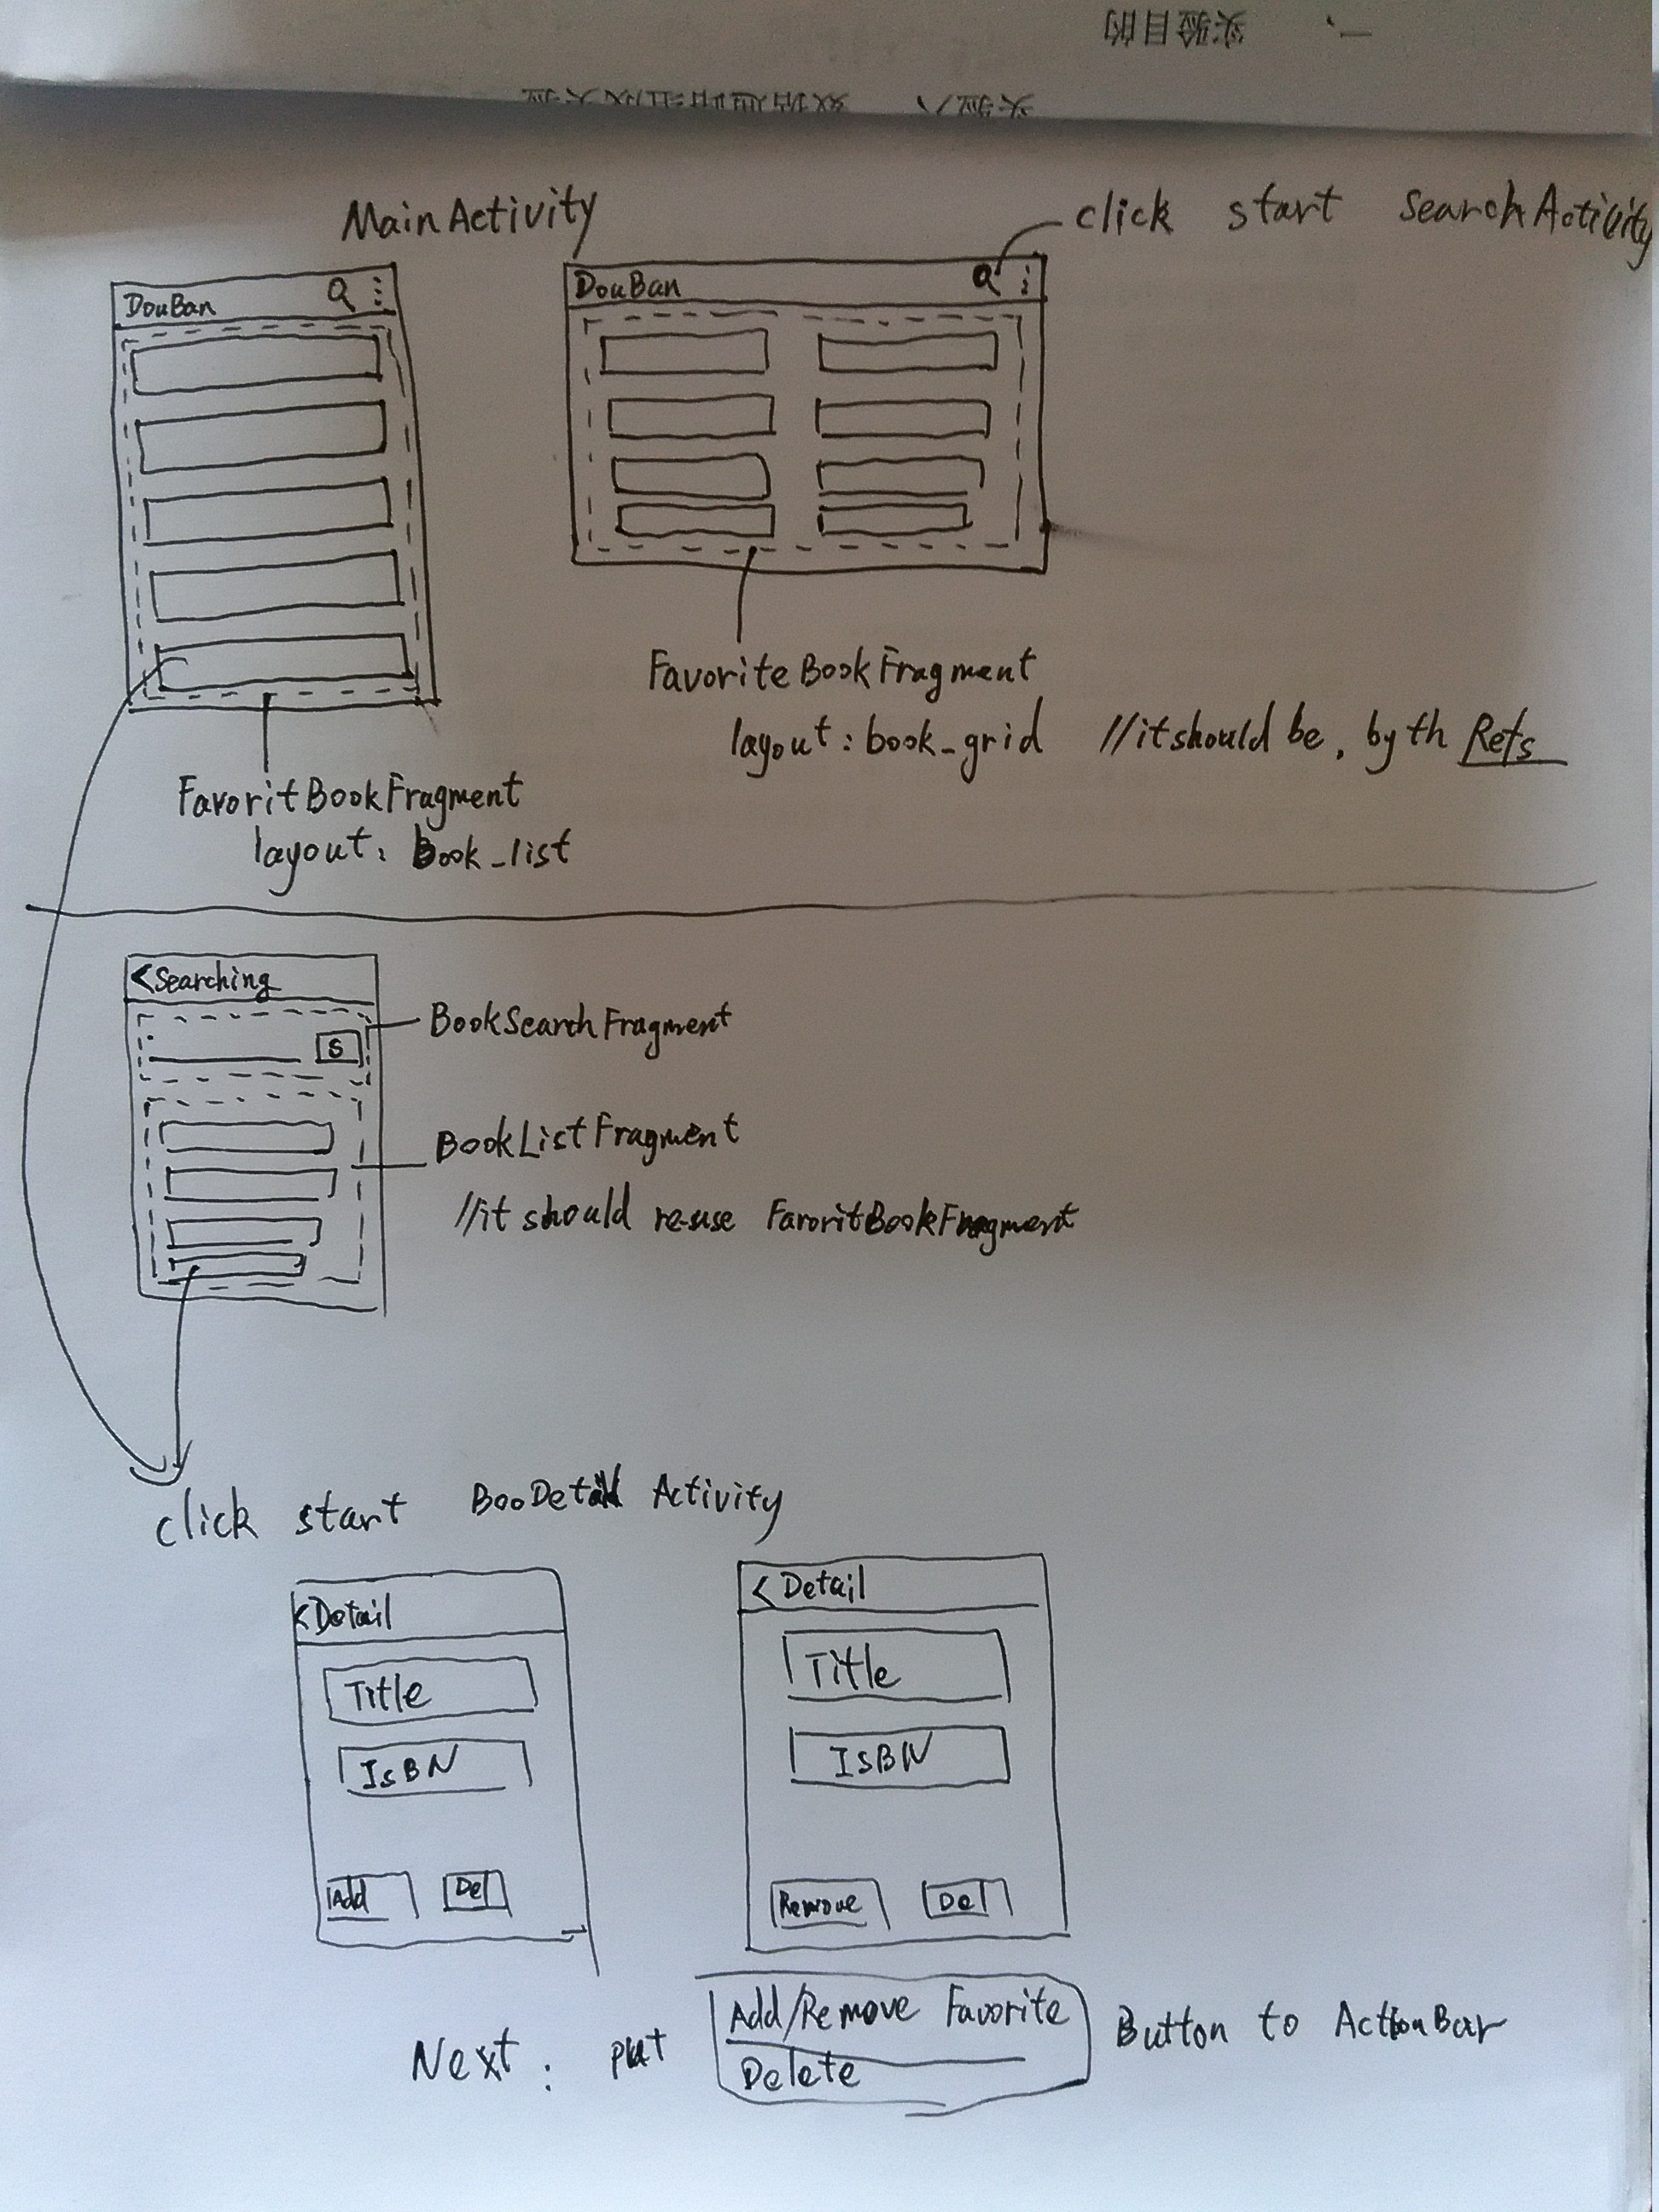 一、 实验目的
MainActivity
click start SearchActivity
DouBan
DouBan
FavoriteBookFragment
layout: book_grid //it should be, by th Refs
FavoritBookFragment
layout: book_list
<Searching
S
BookSearchFragment
BookListFragment
//it should re-use FavoritBookFragment
click start BooDetail Activity
<Detail
Title
ISBN
Add Del
<Detail
Title
ISBN
Remove Del
Next: put Add/Remove Favorite Button to ActionBar
Delete